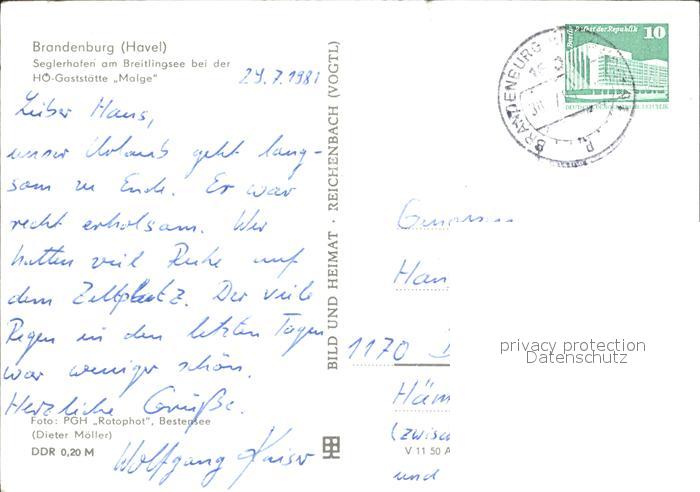 Brandenburg (Havel)
Seglerhafen am Breitlingsee bei der
HO-Gaststätte „Malge"
29.7.1981
Lieber Hans,
unser Urlaub geht lang-
sam zu Ende. Es war
recht erholsam. Wir
hatten viel Ruhe auf
dem Zeltplatz. Der viele
Regen in den letzten Tagen
war weniger schön.
Herzliche Grüße.
Wolfgang Kaiser
Foto: PGH „Rotophot", Bestensee
(Dieter Möller)
DDR 0,20 M
BILD UND HEIMAT · REICHENBACH (VOGTL)
10
Palast der Republik
BRANDENBURG
Han
1170
Häm
(zwisc
V 11 50 A
und
privacy protection
Datenschutz